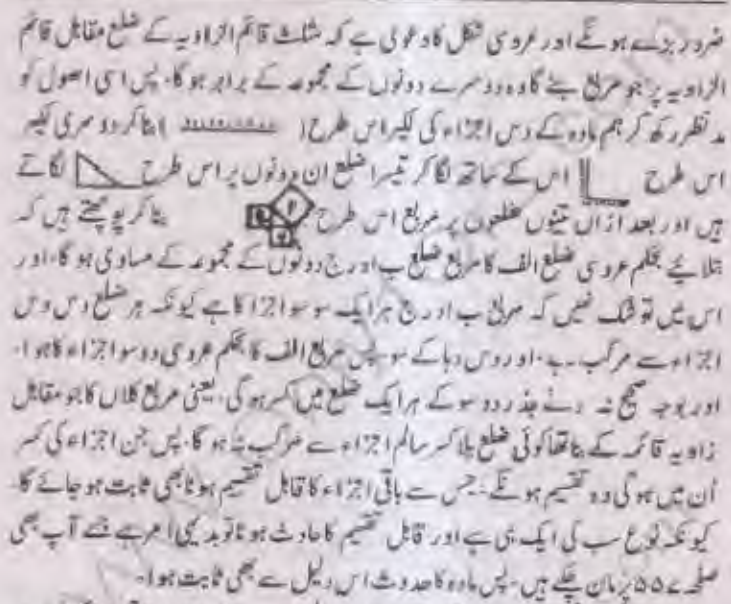 ضرور بڑے ہونگے اور عروسی شکل کا دعویٰ ہے کہ مثلث قائم الزاویہ کے ضلع مقابل قائم
الزاویہ پر جو مربع بنے گا وہ دوسرے دونوں کے مجموعہ کے برابر ہوگا۔ پس اسی اصول کو
مد نظر رکھ کر ہم مادہ کے دس اجزاء کی لکیر اس طرح ( ) بنا کر دوسری لکیر
اس طرح اس کے ساتھ لگا کر تیسرا ضلع ان دونوں پر اس طرح لگاتے
ہیں اور بعد ازاں تینوں ضلعوں پر مربع اس طرح بنا کر پوچھتے ہیں کہ
بتلائیے بحکم عروسی ضلع الف کا مربع ضلع ب اور ج دونوں کے مجموعہ کے مساوی ہوگا، اور
اس میں تو شک نہیں کہ مربع ب اور ج ہر ایک سو سو اجزا کا ہے کیونکہ ہر ضلع دس دس
اجزاء سے مرکب ہے۔ اور دس دہا کے سو پس مربع الف کا بحکم عروسی دو سو اجزاء کا ہوا۔
اور بوجہ صحیح نہ رہنے جذر دو سو کے ہر ایک ضلع میں کسر ہوگی، یعنی مربع کلاں کا جو مقابل
زاویہ قائمہ کے بنا تھا کوئی ضلع بلا کسر سالم اجزاء سے مرکب نہ ہو گا، پس جن اجزاء کی کسر
اُن میں ہوگی وہ تقسیم ہونگے۔ جس سے باقی اجزاء کا قابل تقسیم ہونا بھی ثابت ہو جائے گا۔
کیونکہ نوع سب کی ایک ہی ہے اور قابل تقسیم کا حادث ہونا تو بدیہی امر ہے جسے آپ بھی
صفحہ ۵۵ پر مان چکے ہیں۔ پس مادہ کا حدوث اس دلیل سے بھی ثابت ہوا۔